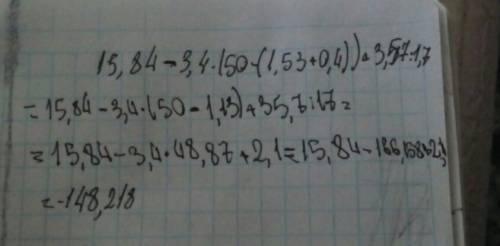 15,84-3,4·(50-(1,53+0,4))+3,57:1,7
=15,84-3,4·(50-1,13)+35,7:17=
=15,84-3,4·48,87+2,1=15,84-166,158+2,1
=-148,218